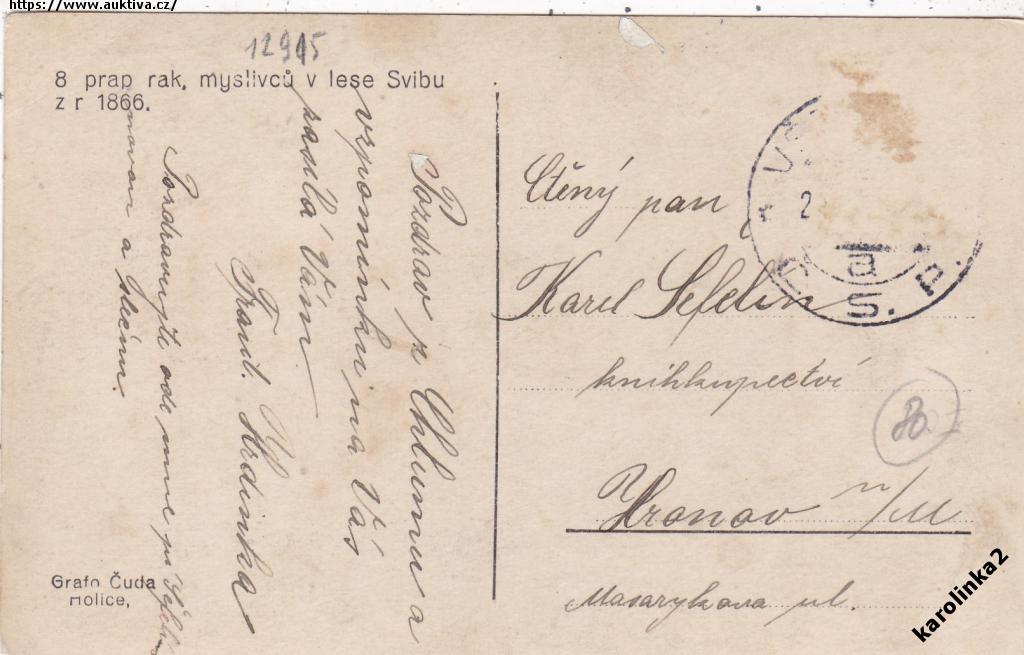 https://www.auktiva.cz/
12915
8 prap rak, myslivců v lese Svibu
z r 1866.
Pozdrav z Chlumu a
vzpomínku na Vás
posílá Vám
Frant.
Pozdravujte ode mne
a
Grafo Čuda
Holice,
Ctěný pan
Karel Sefelin
knihkupectví
Hronov n/M
Masarykova ul.
2
a
S. P.
karolinka2